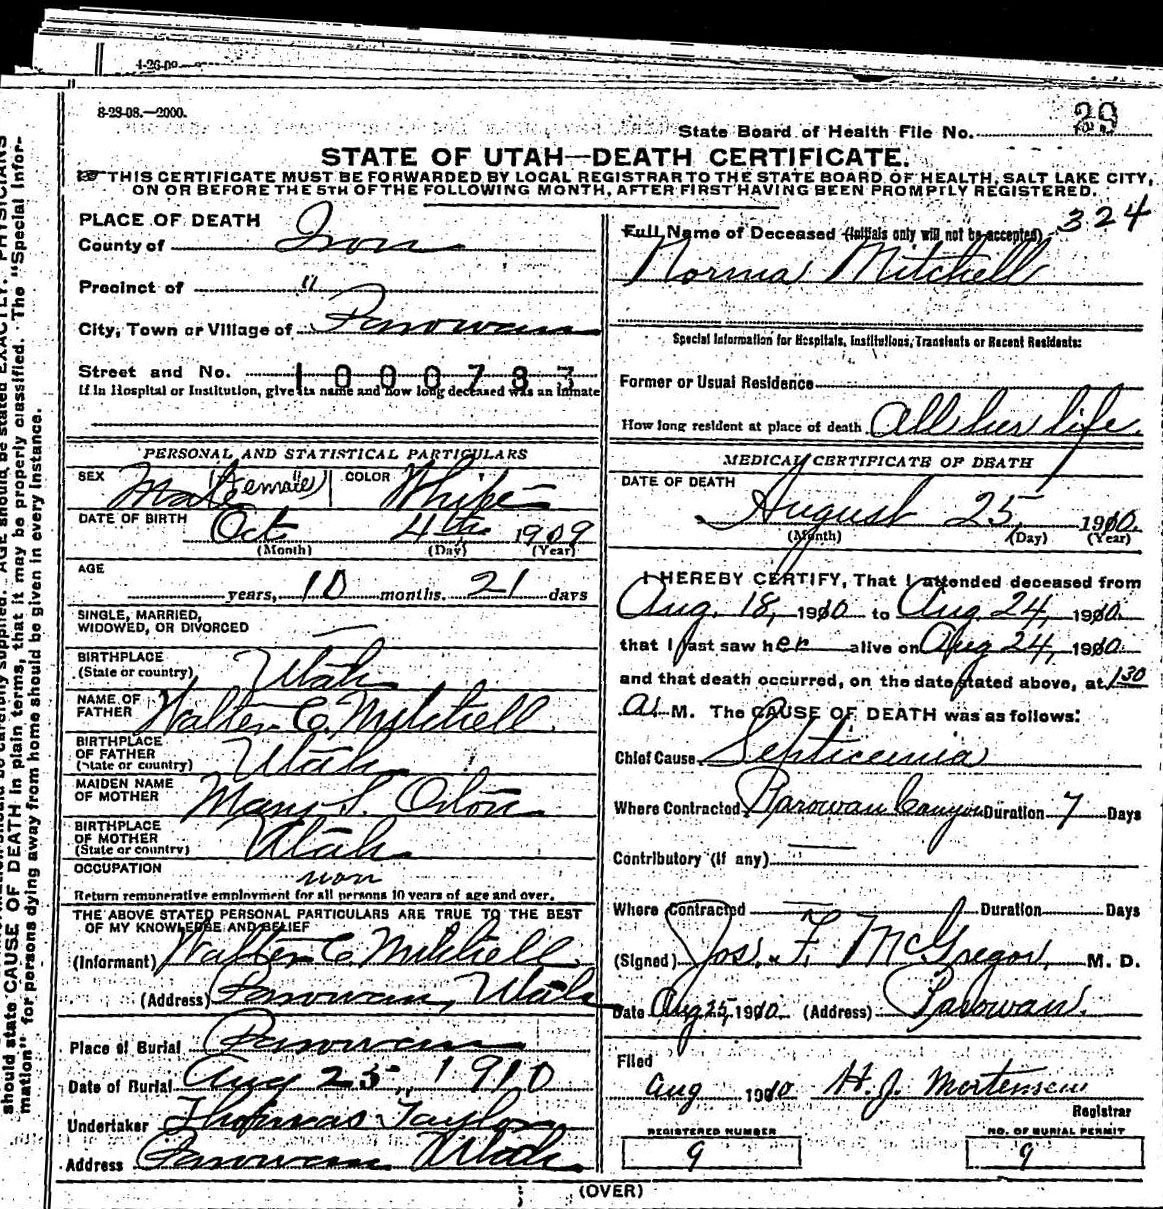 4-26-09
8-28-08.—2000.
State Board of Health File No. 39
STATE OF UTAH—DEATH CERTIFICATE.
THIS CERTIFICATE MUST BE FORWARDED BY LOCAL REGISTRAR TO THE STATE BOARD OF HEALTH, SALT LAKE CITY,
ON OR BEFORE THE 5TH OF THE FOLLOWING MONTH, AFTER FIRST HAVING BEEN PROMPTLY REGISTERED.
PLACE OF DEATH
County of Iron
Precinct of "
City, Town or Village of Parowan
Street and No. 1000783
If in Hospital or Institution, give its name and how long deceased was an inmate
PERSONAL AND STATISTICAL PARTICULARS
SEX Male (Female) COLOR White
DATE OF BIRTH Oct 4th 1909
(Month) (Day) (Year)
AGE
years, 10 months, 21 days
SINGLE, MARRIED,
WIDOWED, OR DIVORCED —
BIRTHPLACE
(State or country) Utah
NAME OF
FATHER Walter C. Mitchell
BIRTHPLACE
OF FATHER
(State or country) Utah
MAIDEN NAME
OF MOTHER Mary S. Orton
BIRTHPLACE
OF MOTHER
(State or country) Utah
OCCUPATION
non
Return remunerative employment for all persons 10 years of age and over.
THE ABOVE STATED PERSONAL PARTICULARS ARE TRUE TO THE BEST
OF MY KNOWLEDGE AND BELIEF
(Informant) Walter C. Mitchell
(Address) Parowan, Utah
Place of Burial Parowan
Date of Burial Aug 25, 1910
Undertaker Thomas Taylor
Address Parowan Utah
324
Full Name of Deceased (Initials only will not be accepted)
Norma Mitchell
Special Information for Hospitals, Institutions, Transients or Recent Residents:
Former or Usual Residence
How long resident at place of death All her life
MEDICAL CERTIFICATE OF DEATH
DATE OF DEATH
August 25, 1910.
(Month) (Day) (Year)
I HEREBY CERTIFY, That I attended deceased from
Aug. 18, 1910 to Aug. 24, 1910.
that I last saw her alive on Aug 24, 1910.
and that death occurred, on the date stated above, at 1 30
A. M. The CAUSE OF DEATH was as follows:
Chief Cause Septicemia
Where Contracted Parowan Canyon Duration 7 Days
Contributory (if any) —
Where Contracted — Duration Days
(Signed) Jos. F. McGregor, M. D.
Date Aug 25, 1910 (Address) Parowan.
Filed
Aug 1910 H. J. Mortensen
Registrar
REGISTERED NUMBER
9
NO. OF BURIAL PERMIT
9
(OVER)
should state CAUSE OF DEATH in plain terms, that it may be properly classified. The "Special Infor-
mation" for persons dying away from home should be given in every instance.